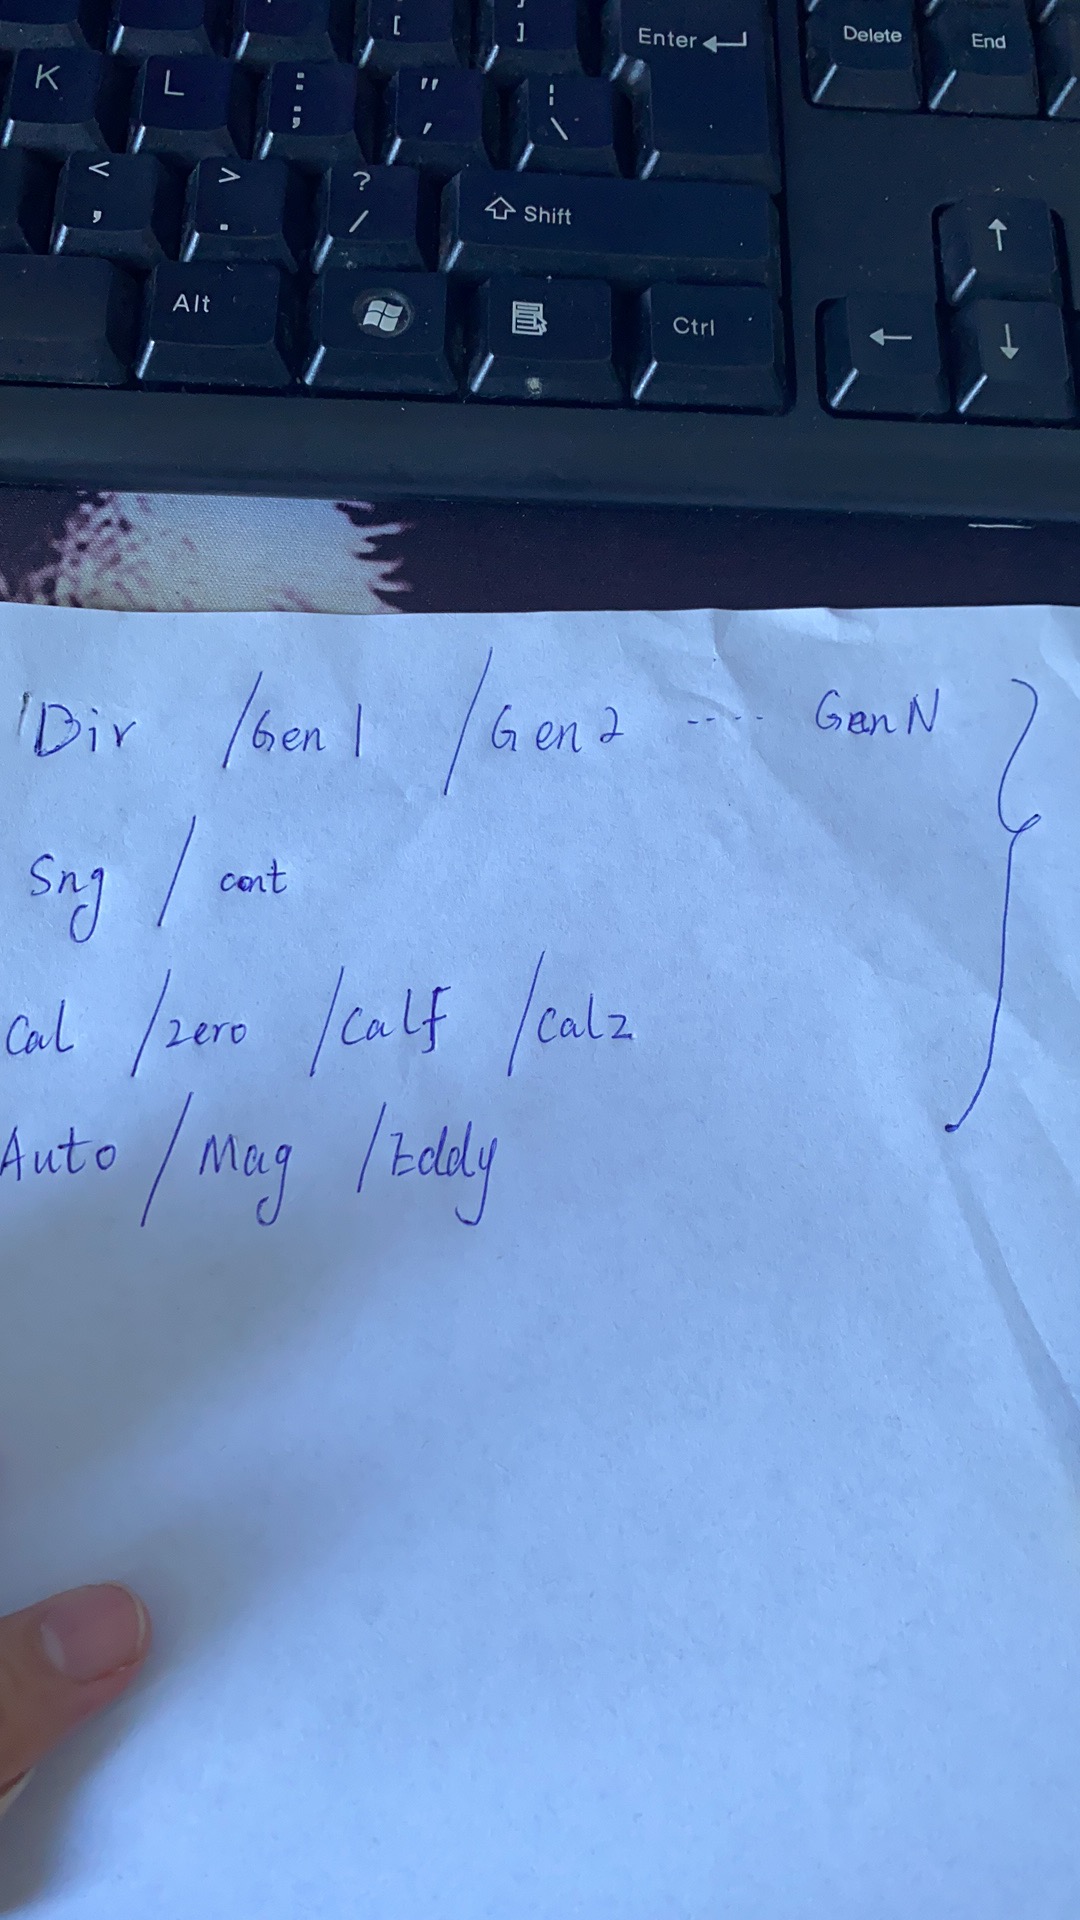 [ ]
Enter Delete End
K L : ; " ' ¦ \
< , > . ? / Shift ↑
Alt Ctrl ← ↓
Dir /Gen 1 /Gen 2 ---- Gen N
Sng / cont
Cal /zero /Calf /Cal2
Auto / Mag /Eddy